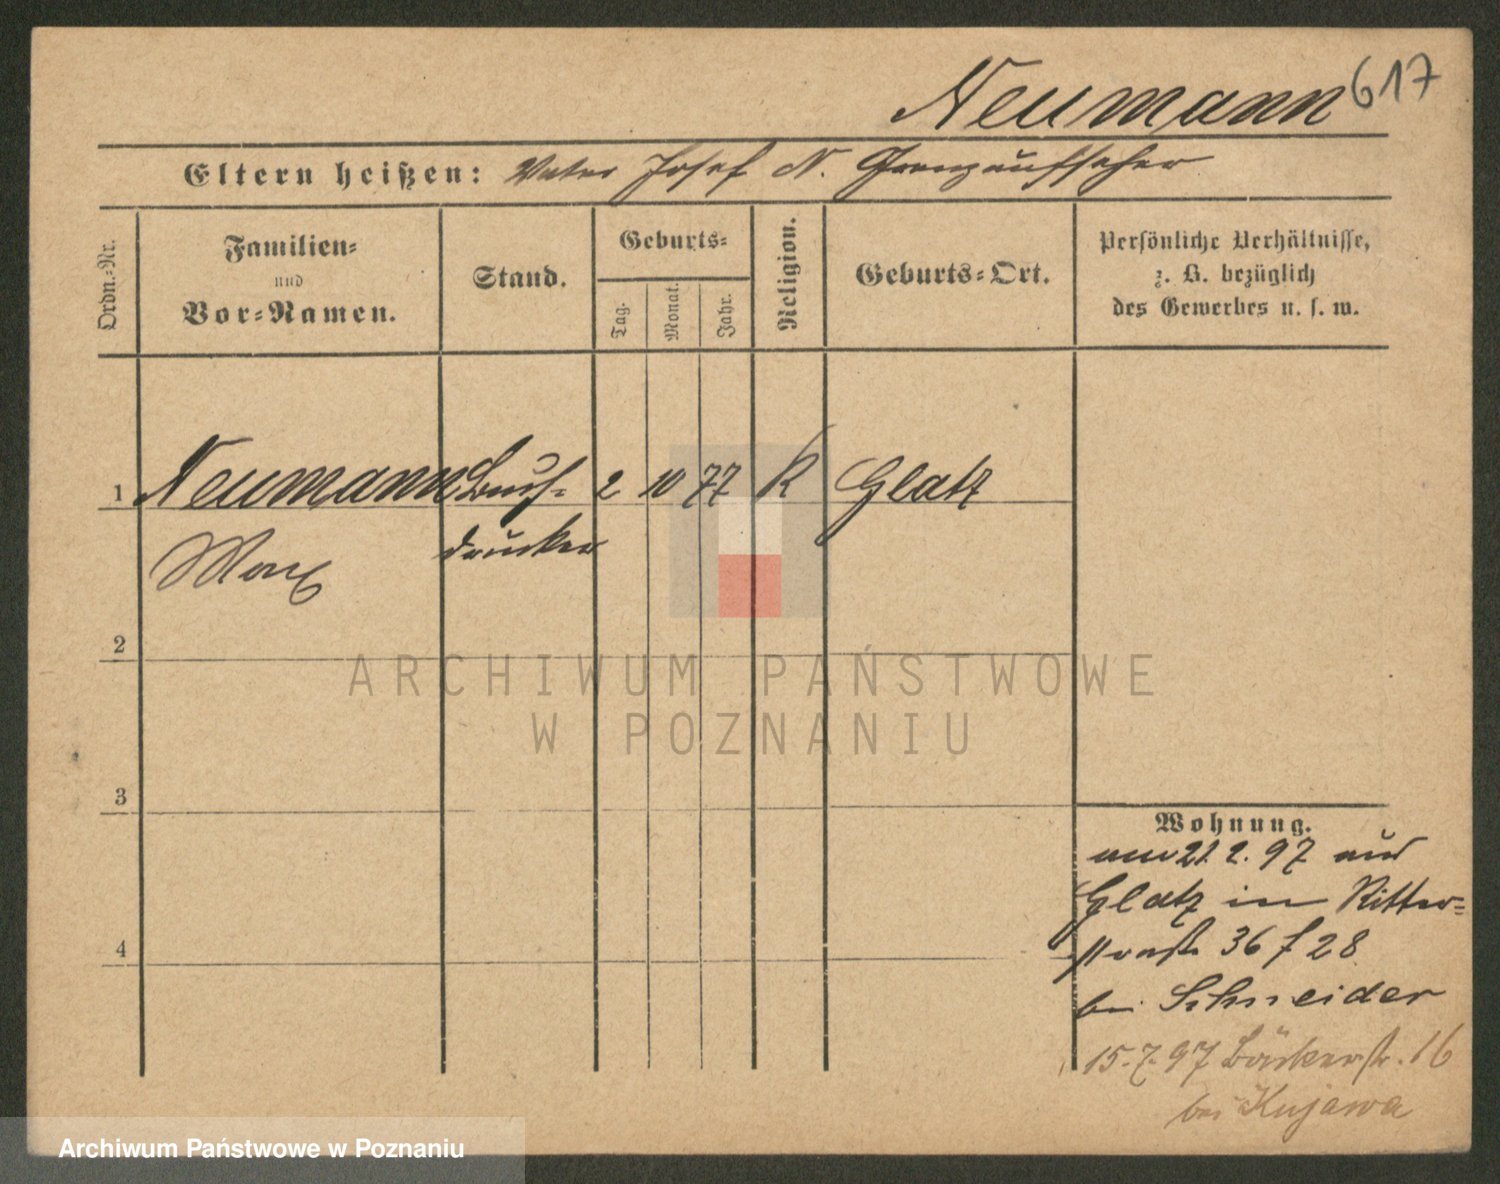 Neumann 617
Eltern heißen: Vater Josef N. Grenzaufseher
Ordn.-Nr.
Familien-
und
Vor-Namen.
Stand.
Geburts-
Tag.
Monat.
Jahr.
Religion.
Geburts-Ort.
Persönliche Verhältnisse,
z. B. bezüglich
des Gewerbes u. s. w.
1 Neumann Buch- 2 10 77 K Glatz
Max drucker
2
3
4
Wohnung.
am 21.2.97 aus
Glatz in Ritter-
straße 36 f 28
bei Schneider
15.7.97 Bäckerstr. 16
bei Kujawa
ARCHIWUM PAŃSTWOWE
W POZNANIU
Archiwum Państwowe w Poznaniu